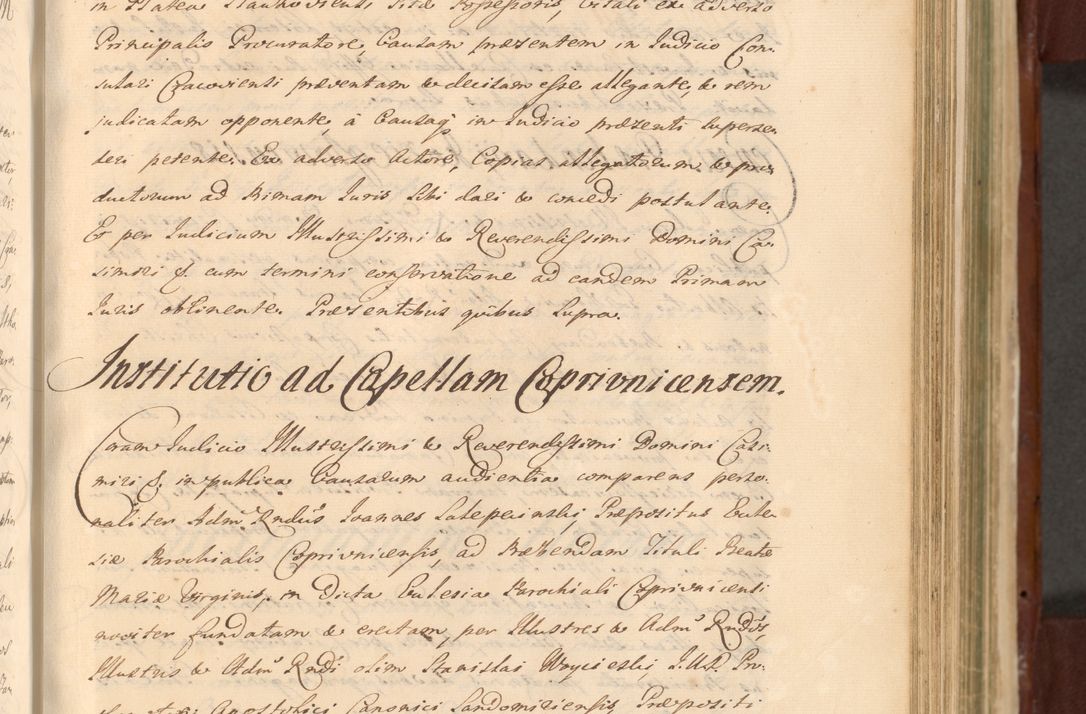 in Platea Slavkoviensi sitæ Possessoris, Citati ex adverso
Principalis Procuratore, Causam præsentem in Iudicio Con-
sulari Cracoviensi præventam & decisam esse allegante, & rem
judicatam opponente, à Causaq3 in Iudicio præzenti superse-
deri petente. Ex adverso Actore, Copias allegatorum & pro-
ductorum ad Primam Iuris sibi dari & concedi postulante.
Et per Iudicium Illustrissimi & Reverendissimi Domini Ca-
simiri S. cum termini conservatione ad eandem Primam
Iuris obtinente. Præsentibus quibus supra.
Institutio ad Capellam Coprivnicensem.
Coram Iudicio Illustrissimi & Reverendissimi Domini Casi-
miri S. in publica Causarum audientia comparens perso-
naliter Admᵒ Rndus Joannes Præpositus Eccle-
siæ Parochialis Coprivnicensis, ad Præbendam Tituli Beatæ
Mariæ Virginis, in Dicta Ecclesia Parochiali Coprivnicensi
noviter fundatam & erectam, per Illustres & Admᵒ Rndos,
Illustris & Admᵒ Rndi olim Stanislai Woycieski, I.U.D. Pro-
Apostolici Canonici Sandomiriensis, Præpositi